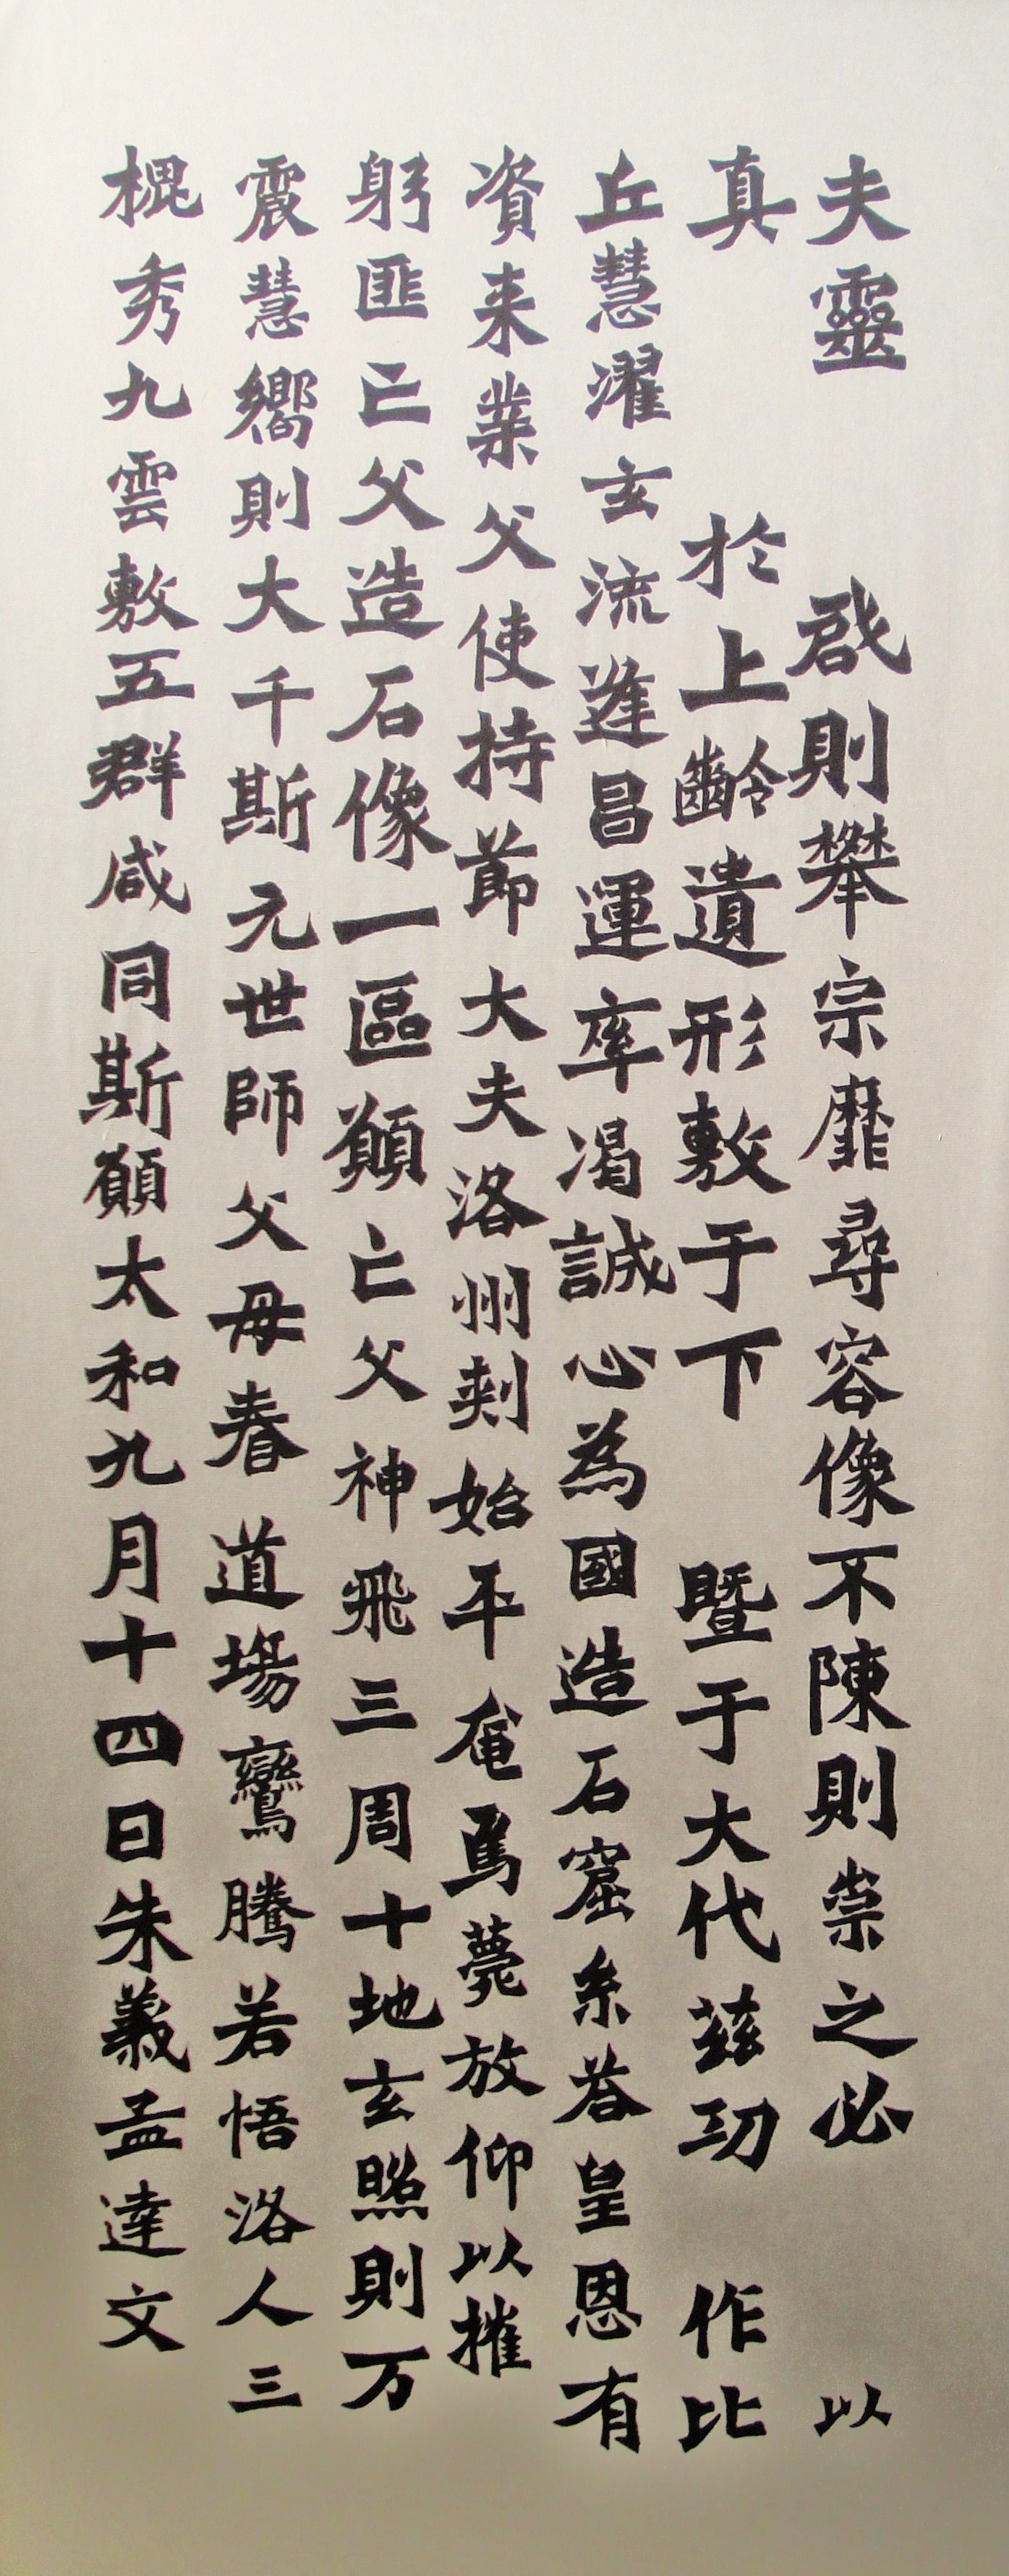 夫靈 啟則攀宗靡尋容像不陳則崇之必 以
真 於上齡遺形敷于下 暨于大代茲功 作比
丘慧濯玄流逢昌運率渴誠心為國造石窟糸荅皇恩有
資来業父使持節大夫洛州刺始平 馬薨放仰以摧
躬匪亡父造石像一區願亡父神飛三周十地玄照則万
震慧嚮則大千斯元世師父母春道場鸞騰若悟洛人三
槐秀九雲敷五群咸同斯願太和九月十四日朱義孟達文